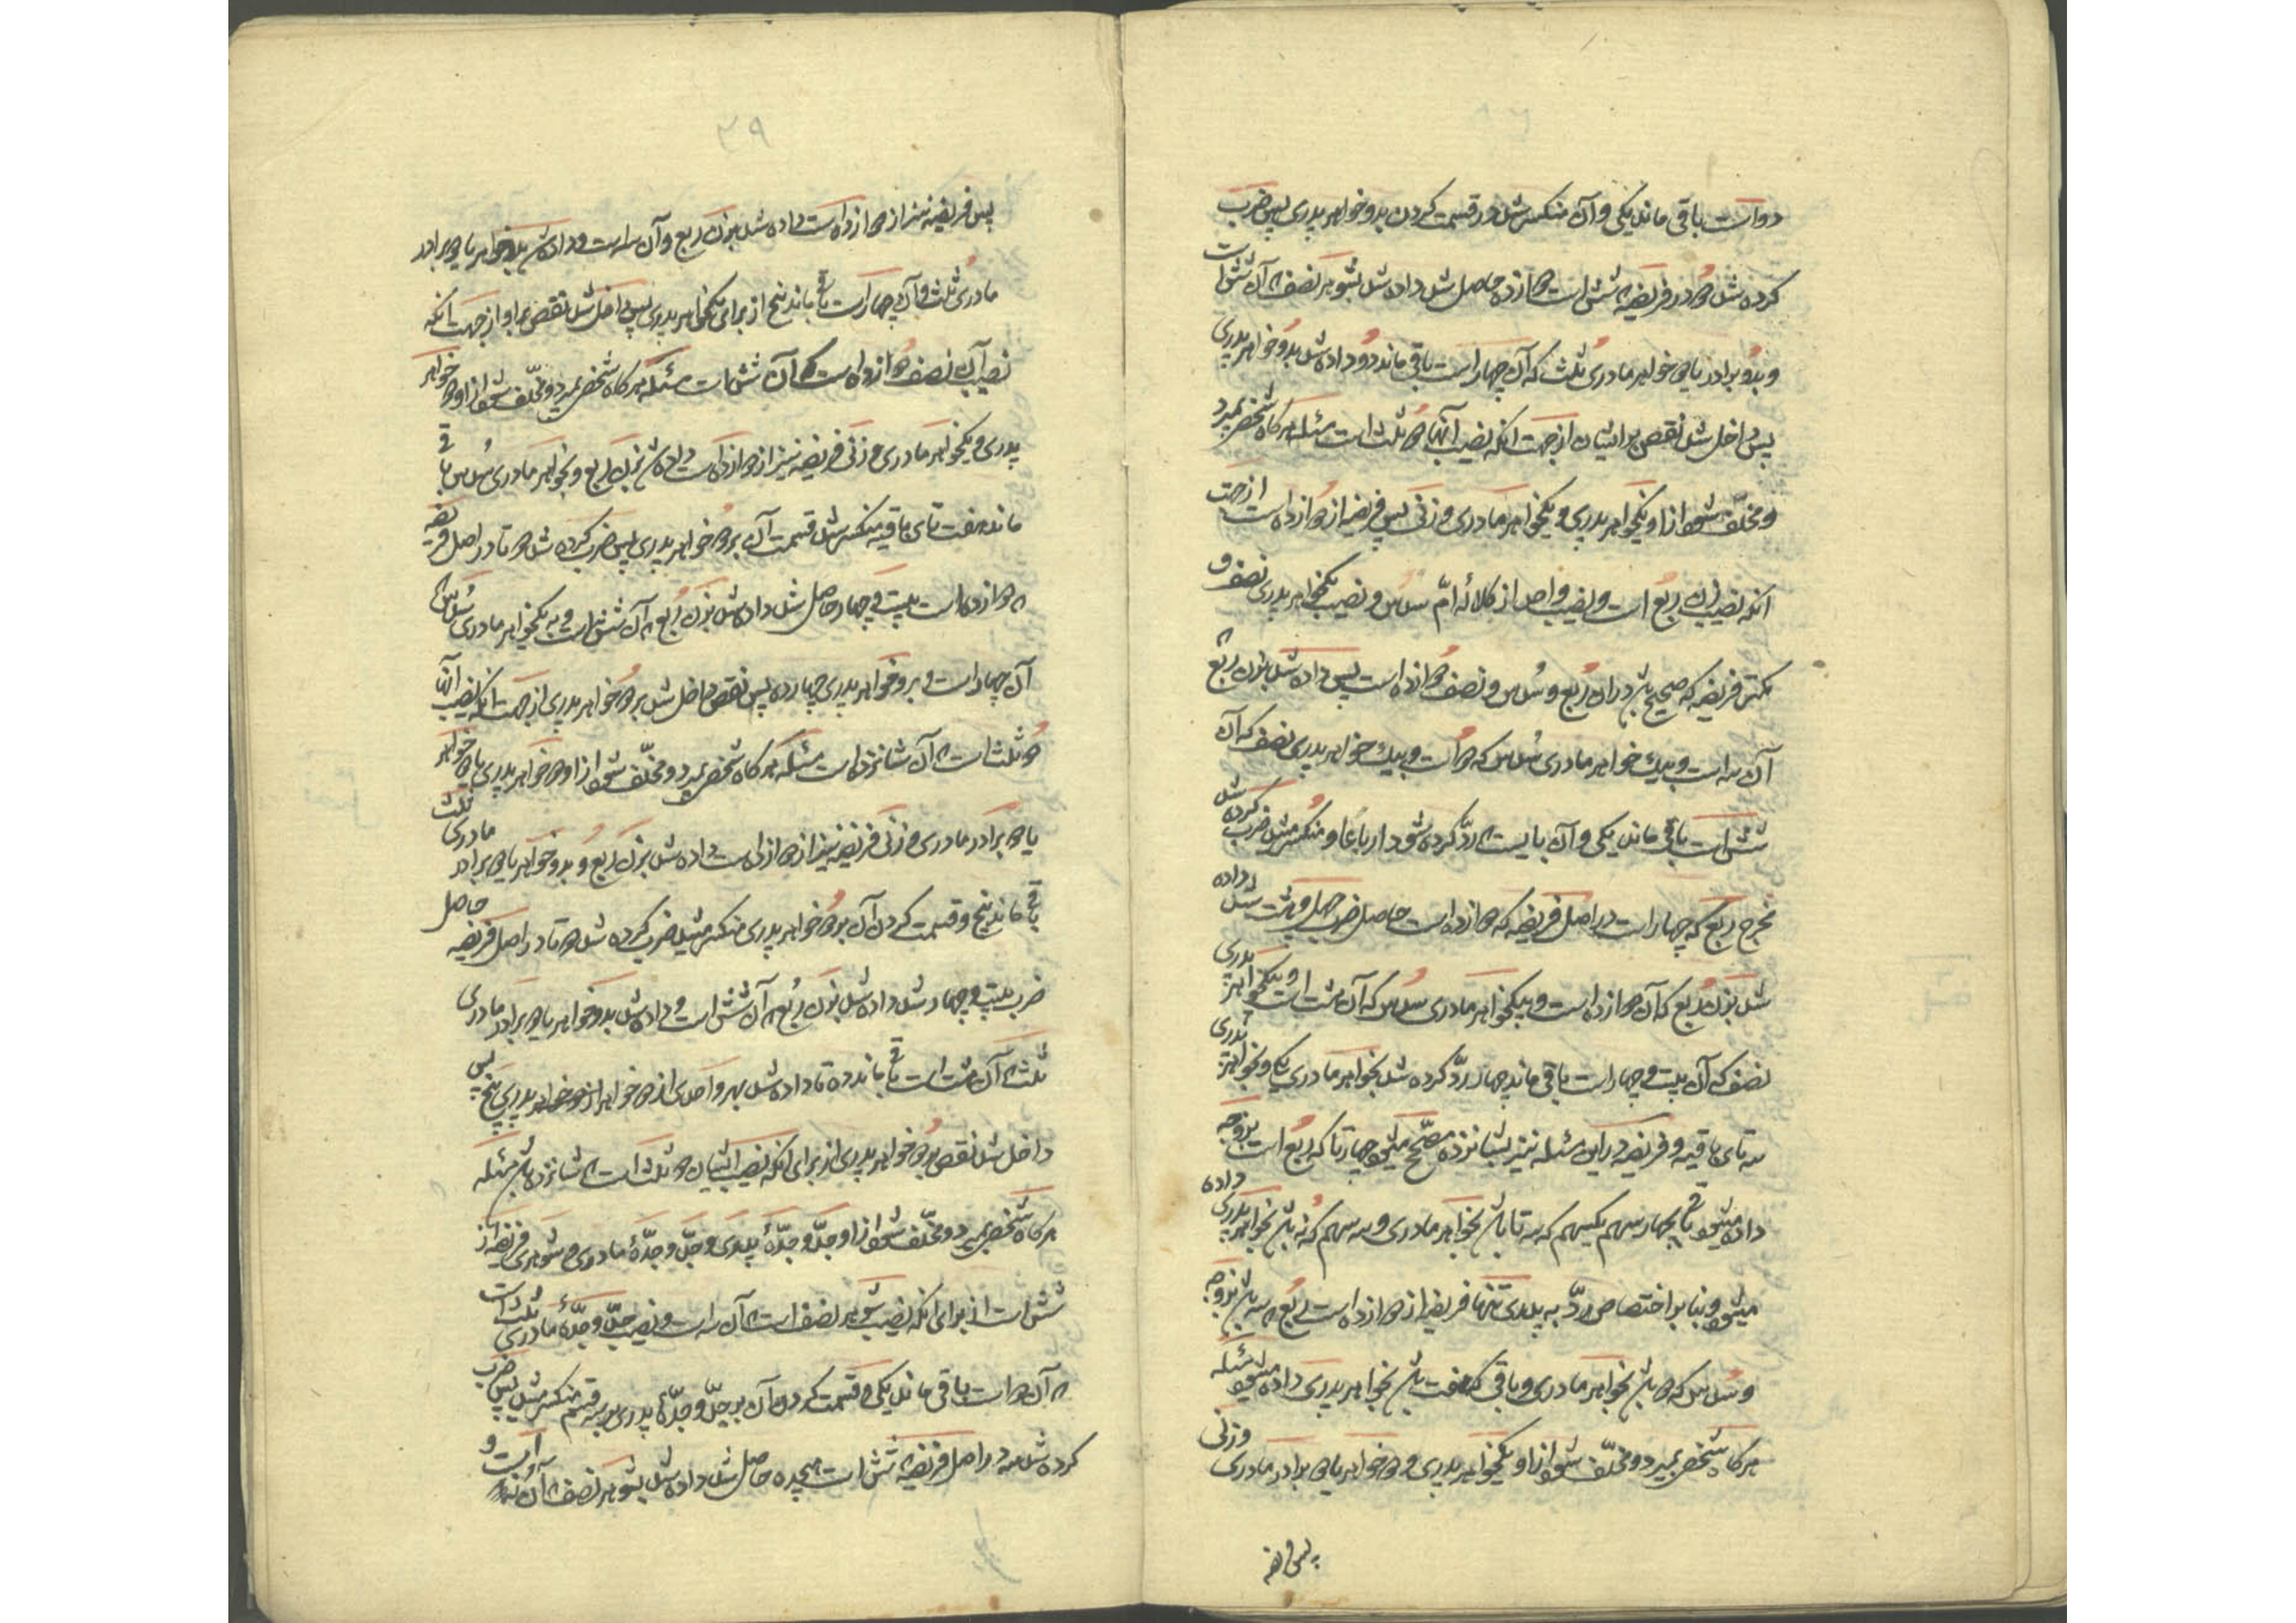 دو است باقی ماند یکی و آن منکسر شد در قسمت کردن بدو خواهر پدری پس ضرب
کرده شد دو در فریضه که شش است دوازده حاصل شد داده شد بشوهر نصف که آن شش است
و بدو برادر یا دو خواهر مادری ثلث که آن چهار است باقی ماند دو داده شد بدو خواهر پدری
پس داخل شد نقص بر ایشان از جهت انکه نصیب آنها دو ثلث است مسئله هر کاه شخص بمیرد
و مخلّف شود از او یکخواهر پدری و یکخواهر مادری و زنی پس فریضه از دوازده است از جهت
انکه نصیب زن ربع است و نصیب واحد از کلاله امّ سدس و نصیب یکخواهر پدری نصف و
کمتر فریضه که صحیح باشد در ان ربع و سدس و نصف دوازده است پس داده شد بزن ربع که
آن سه است و بیک خواهر مادری سدس که دو است و بیک خواهر پدری نصف که آن
شش است باقی ماند یکی و آن بایست که ردّ کرده شود ارباعًا و منکسر میشد ضرب کرده شد
مخرج ربع که چهار است در اصل فریضه که دوازده است حاصل ضرب چهل و هشت شد داده
شد بزن ربع که آن دوازده است و بیکخواهر مادری سدس که آن هشت است و بیکخواهر پدری
نصف که آن بیست و چهار است باقی ماند چهار ردّ کرده شد بخواهر مادری یکی و بخواهر پدری
سه تای باقیه و فریضه در این مسئله نیز بشانزده مصحّح میشود چهار تا که ربع است بزوجه
داده میشود باقی بچهار سهم یکسهم که سه تا باشد بخواهر مادری و سه سهم که نه باشد بخواهر پدری داده
میشود و بنا بر اختصاص ردّ به پدری تنها فریضه از دوازده است ربع که سه باشد بزوجه
و سدس که دو باشد بخواهر مادری و باقی که هفت باشد بخواهر پدری داده میشود مسئله
هر کاه شخص بمیرد و مخلّف شود از او یکخواهر پدری و دو خواهر یا دو برادر مادری و زنی
پس فریضه
۳۹
پس فریضه نیز از دوازده است داده شد بزن ربع و آن سه است و داده شد بدو خواهر یا دو برادر
مادری ثلث و آن چهار است باقی ماند پنج از برای یکخواهر پدری پس داخل شد نقص بر او از جهت انکه
نصیب آن نصف دوازده است که آن شش است مسئله هر کاه شخص بمیرد و مخلّف شود از او دو خواهر
پدری و یکخواهر مادری و زنی فریضه نیز از دوازده است داده شد بزن ربع و بخواهر مادری سدس باقی
ماند هفت تای باقیه منکسر شد قسمت آن بر دو خواهر پدری پس ضرب کرده شد دو تا در اصل فریضه
که دوازده است بیست و چهار حاصل شد داده شد بزن ربع که آن شش است و به یکخواهر مادری سدس که
آن چهار است و بر دو خواهر پدری چهارده پس نقص داخل شد بر دو خواهر پدری از جهت انکه نصیب آنها
دو ثلث است که آن شانزده است مسئله هر کاه شخص بمیرد و مخلّف شود از او دو خواهر پدری با دو خواهر
یا دو برادر مادری و زنی فریضه نیز از دوازده است داده شد بزن ربع و بدو خواهر یا دو برادر مادری ثلث
باقی ماند پنج و قسمت کردن آن بر دو خواهر پدری منکسر میشد ضرب کرده شد دو تا در اصل فریضه حاصل
ضرب بیست و چهار شد داده شد بزن ربع که آن شش است و داده شد بدو خواهر یا دو برادر مادری
ثلث که آن هشت است باقی ماند ده تا داده شد بهر واحدی از دو خواهر پدری پنج پس
داخل شد نقص بر دو خواهر پدری از برای انکه نصیب ایشان دو ثلث است که شانزده باشد مسئله
هر کاه شخص بمیرد و مخلّف شود از او جدّ و جدّهٔ پدری و جدّ و جدّهٔ مادری و شوهری فریضه از
شش است از برای انکه نصیب شوهر نصف است که آن سه است و نصیب جدّ و جدّهٔ مادری ثلث است
که آن دو است باقی ماند یکی و قسمت کردن آن بر جدّ و جدّهٔ پدری بر سه قسم منکسر میشد پس ضرب
کرده شد سه در اصل فریضه که شش است هیجده حاصل شد داده شد بشوهر نصف که آن نه است و